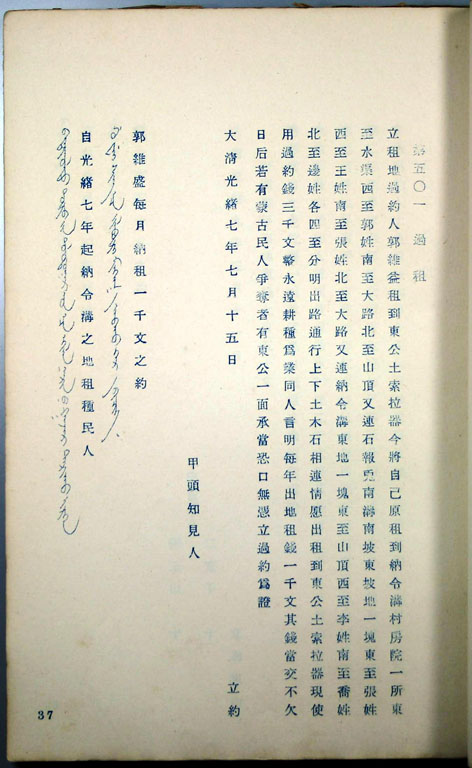 第五〇一　過租
立租地過約人郭維益租到東公土索拉器今將自己原租到納令溝村房院一所東
至水渠西至郭姓南至大路北至山頂又連石報兎南海南坡東坡地一塊東至張姓
西至王姓南至張姓北至大路又連納令溝東地一塊東至山頂西至李姓南至喬姓
北至邊姓各四至分明出路通行上下土木石相連情愿出租到東公土索拉器現使
用過約錢三千文幣永遠耕種爲業同人言明每年出地租錢一千文其錢當交不欠
日后若有蒙古民人爭奪者有東公一面承當恐口無憑立過約爲證
大清光緒七年七月十五日　立約
甲頭知見人
郭維盛每月納租一千文之約
自光緒七年起納令溝之地租種民人
37